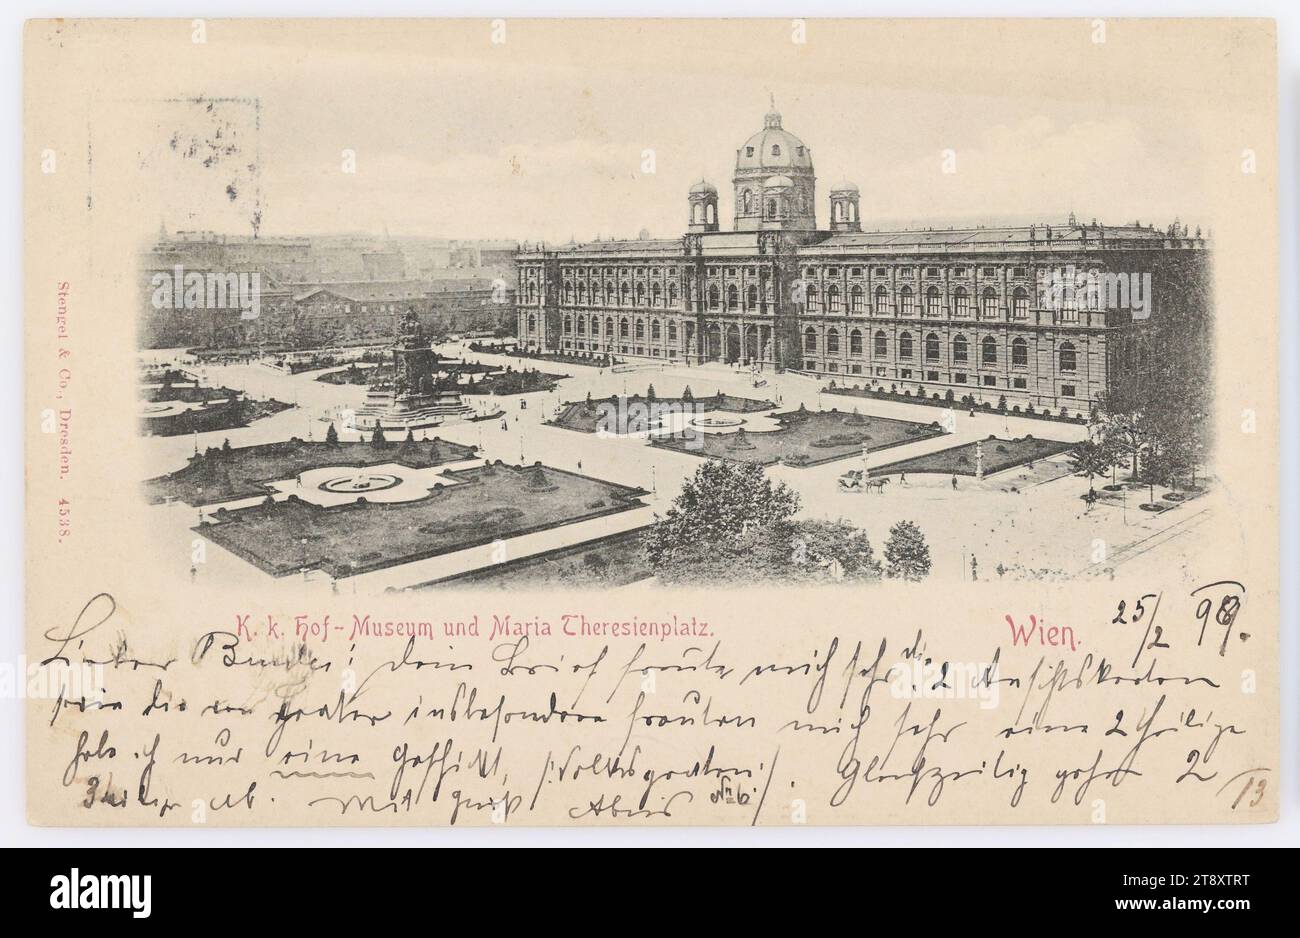 Stengel & Co., Dresden. 4538.
K. k. Hof-Museum und Maria Theresienplatz.
Wien. 25/2
Lieber Bruder! Dein Brief freute mich sehr, die 2 Ansichtskarten
sowie die von insbesondere freuten mich sehr eine 2 theilige
habe ich nur eine geschickt, /:Volksgarten:/. Gleichzeitig 2
3theilige ab. Mit Gruß Alois No 6. 13
alamy
Image ID: 2T8XTRT
www.alamy.com